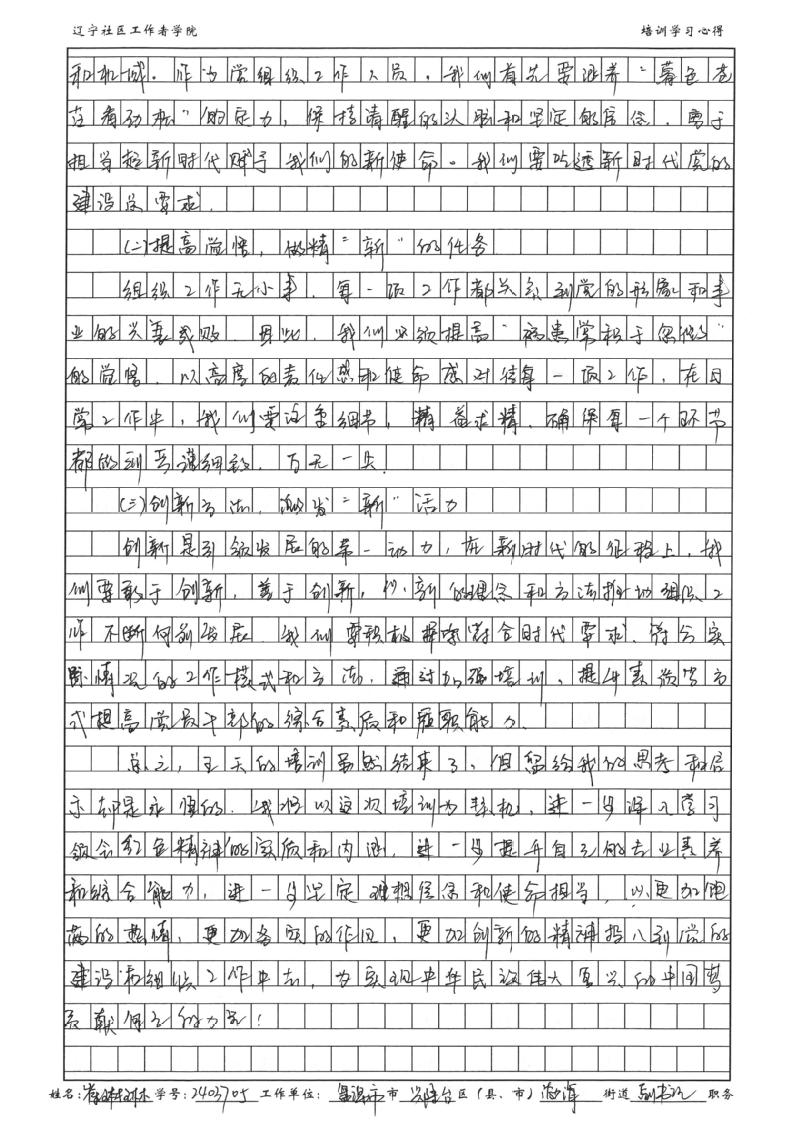 辽宁社区工作者学院 培训学习心得
和机械。作为党组织工作人员,我们首先要涵养“暮色苍
茫看劲松”的定力,保持清醒的头脑和坚定的信念,勇于
担当起新时代赋予我们的新使命。我们要吃透新时代党的
建设总要求.
(二)提高觉悟,做精“新”的任务
组织工作无小事,每一项工作都关系到党的形象和事
业的兴衰成败.因此,我们必须提高“祸患常积于忽微”
的觉悟,以高度的责任感和使命感对待每一项工作,在日
常工作中,我们要注重细节,精益求精,确保每一个环节
都做到严谨细致,万无一失.
(三)创新方法,激发“新”活力
创新是引领发展的第一动力,在新时代的征程上,我
们要敢于创新,善于创新,以新的理念和方法推动组织工
作不断向前发展.我们要积极探索符合时代要求,符合实
际情况的工作模式和方法,通过加强培训、提升素质等方
式提高党员干部的综合素质和履职能力.
总之,五天的培训虽然结束了,但留给我的思考和启
示却是永恒的.我将以这次培训为契机,进一步深入学习
领会红色精神的实质和内涵,进一步提升自己的专业素养
和综合能力,进一步坚定理想信念和使命担当,以更加饱
满的热情,更加务实的作风,更加创新的精神投入到党的
建设和组织工作中去,为实现中华民族伟大复兴的中国梦
贡献自己的力量!
姓名: 学号:2403705 工作单位: 市 兴隆台区(县、市) 街道 副书记 职务